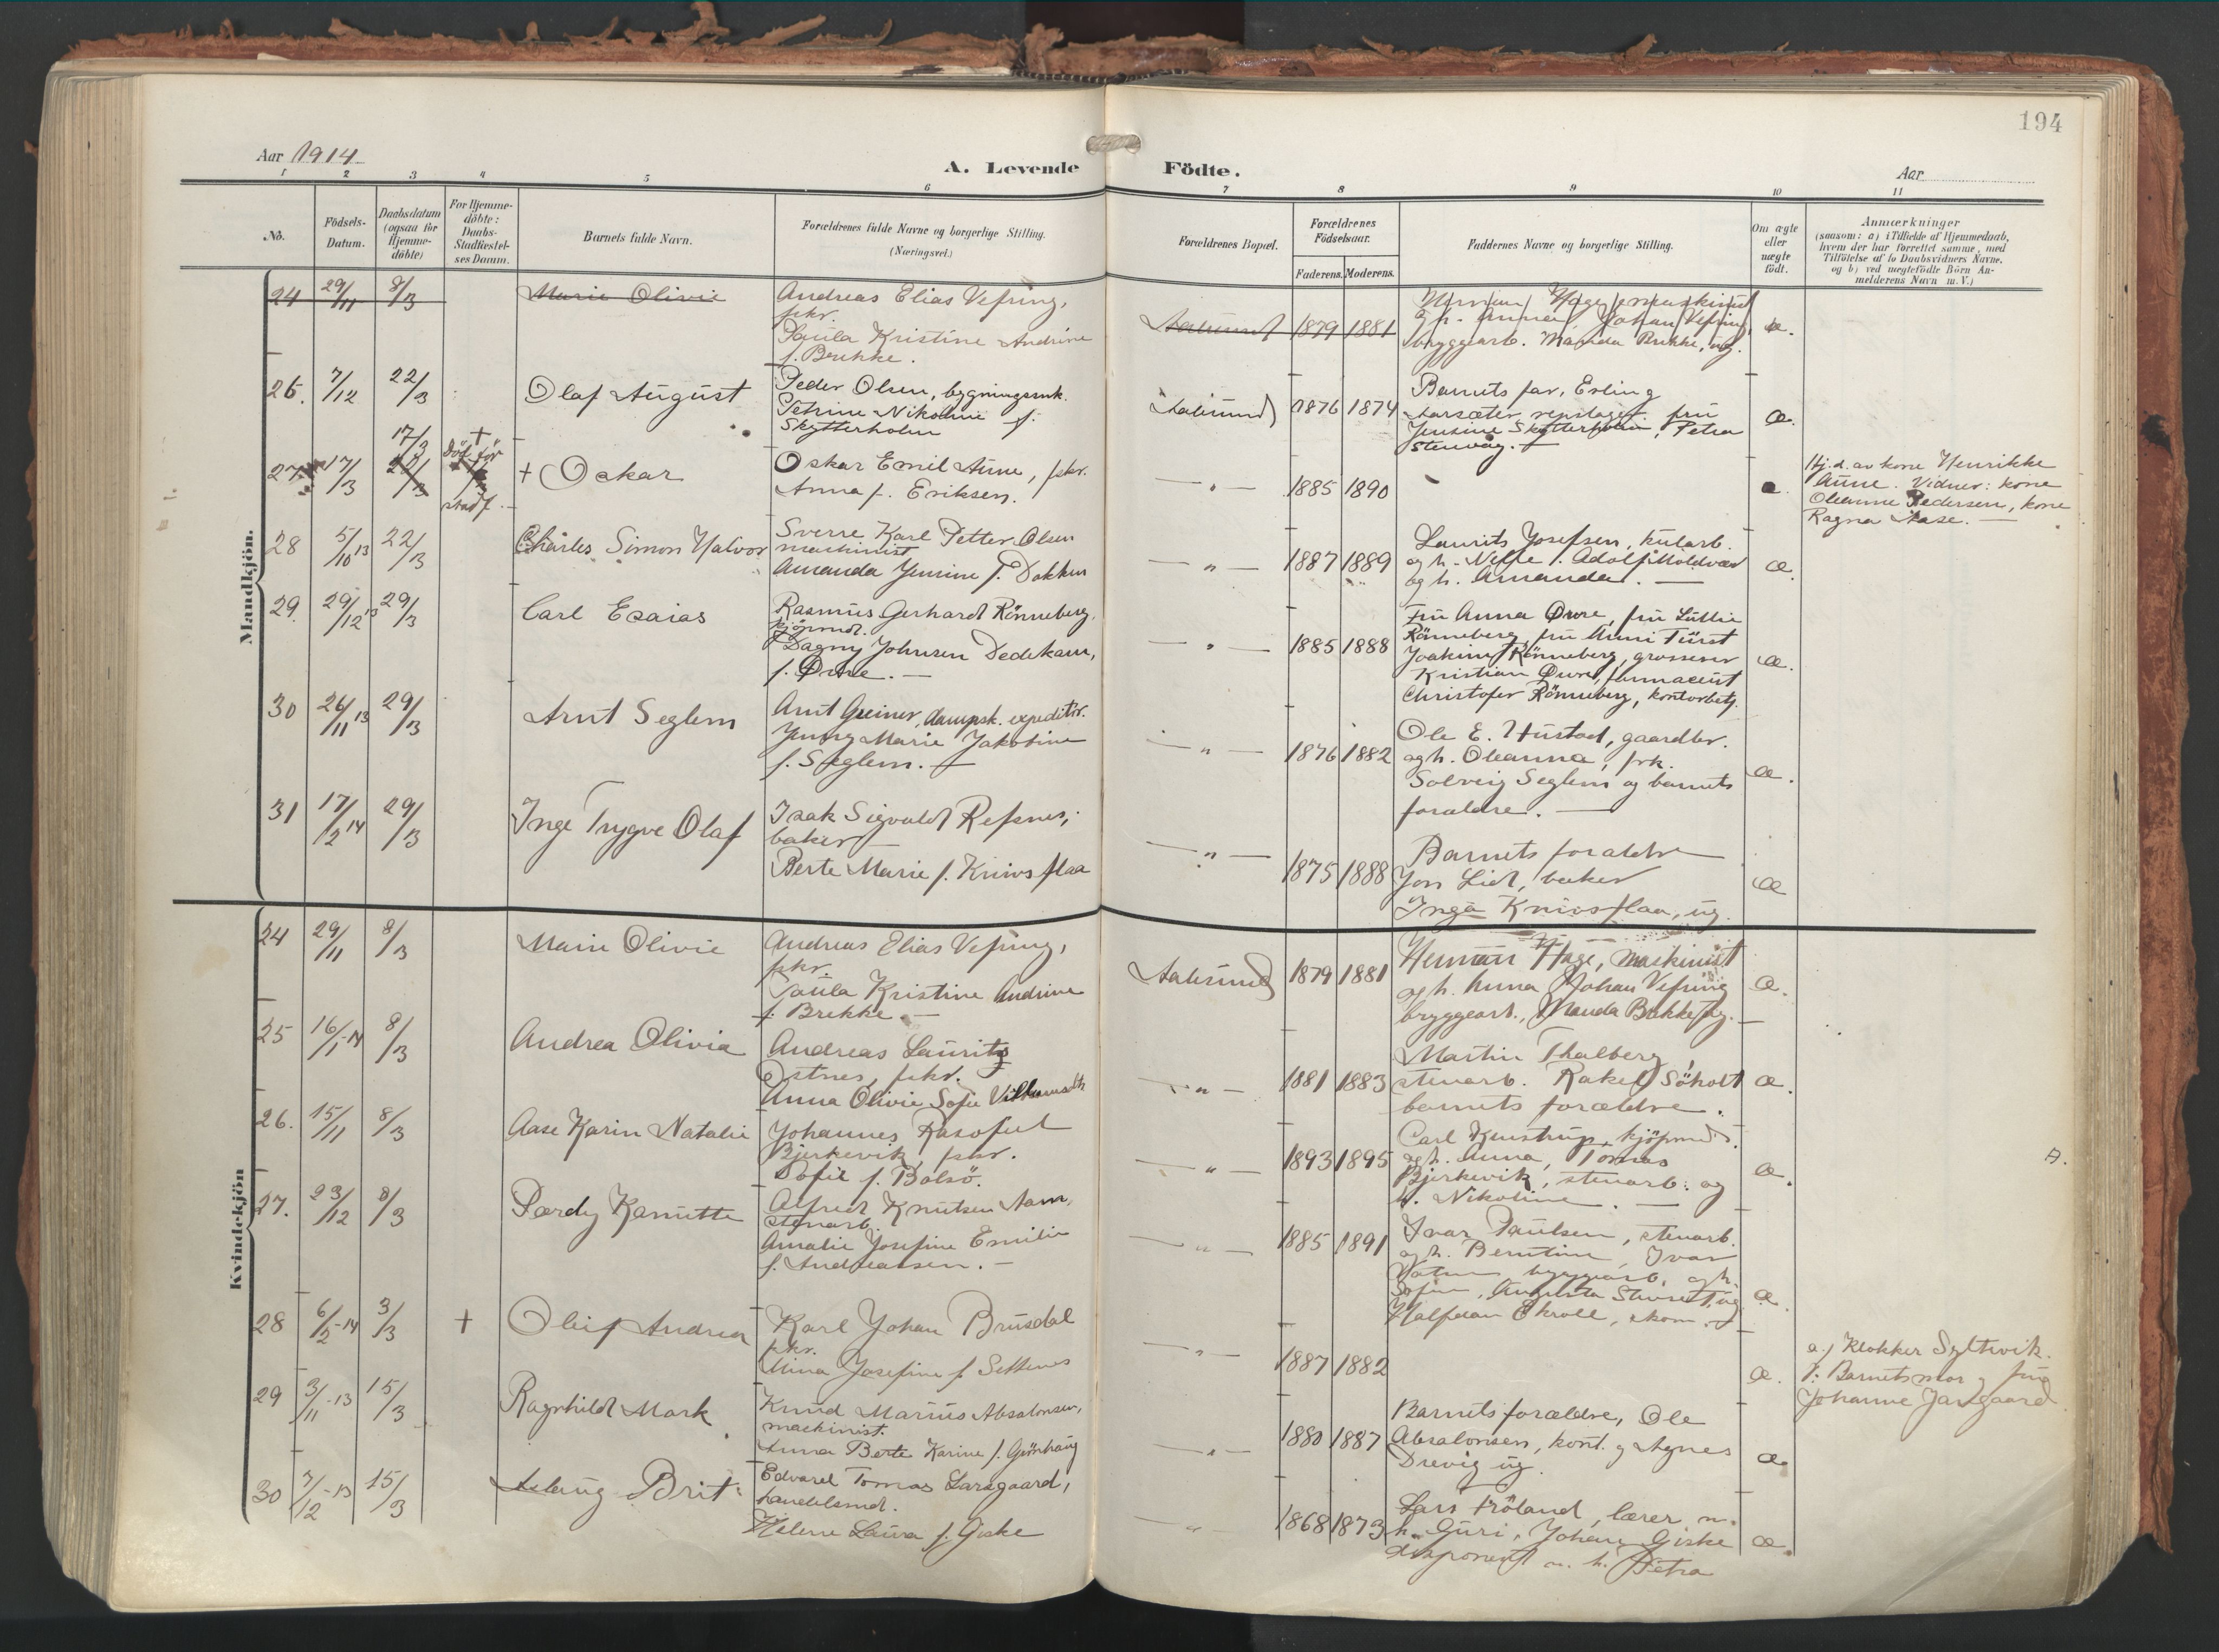 194
Aar 1914
A. Levende Födte.
Aar
1 2 3 4 5 6 7 8 9 10 11
No.
Födsels-Datum.
Daabsdatum (ogsaa for Hjemme-döbte)
For Hjemme-döbte: Daabs-Stadfæstel-ses Datum.
Barnets fulde Navn.
Forældrenes fulde Navne og borgerlige Stilling.
(Næringsvei.)
Forældrenes Bopæl.
Forældrenes Födselsaar.
Faderens. Moderens.
Faddernes Navne og borgerlige Stilling.
Om ægte eller uægte födt.
Anmærkninger
(saasom: a) i Tilfælde af Hjemmedaab,
hvem der har forrettet samme, med
Tilföielse af to Daabsvidners Navne.
og b) ved uægtefödte Börn An-
melderens Navn m. V.)
Mandkjön.
24 29/11 8/3 Marie Olivie
Andreas Elias Vefring,
fskr.
Paula Kristine Andrine
f. Brekke.
Aalesund 1879 1881
Herman Hage, maskinist
og h. Anna, Johan Vefring
bryggearb. Manda Brekke, ug.
æ.
26. 7/12 22/3 Olaf August
Peder Olsen, bygningssnk.
Petrine Nikoline f.
Skytterholm
Aalesund 1876 1874
Barnets far, Erling
Aarsæter, repslager. fru
Jensine Skytterholm, Petra
Stenvåg.
æ.
27. 17/3 17/3 22/3 Död för stadf. + Oskar
Oskar Emil Aune, fskr.
Anna f. Eriksen.
— " — 1885 1890
Hj.d. av kone Henrikke
Aune. Vidner: kone
Oleanne Pedersen, kone
Ragna Aase. —
28 5/10 13 22/3 Charles Simon Halvor
Sverre Karl Petter Olsen
machinist
Amanda Jensine f. Dokken
— " — 1887 1889
Laurits Josefsen, kularb.
og h. Nelle. Adolf Moldvær
og h. Amanda. —
æ.
29. 29/12 13 29/3 Carl Esaias
Rasmus Gerhard Rönneberg,
kjöpmd.
Dagny Johnsen Dedekam,
f. Øwre. —
— " — 1885 1888
Fru Anna Øwre, fru Lullie
Rönneberg, fru Anni Fürst
Joakim Rönneberg, grosserer
Kristian Øwre, farmaceut
Christofer Rönneberg, kontorbetj.
æ.
30 26/11 13 29/3 Arnt Seglem
Arnt Greiner, dampsk. expeditör.
Jenny Marie Jakobine
f. Seglem.
— " — 1876 1882
Ole E. Hustad, gaardbr.
og h. Oleanna, frk.
Solveig Seglem og barnets
forældre. —
æ.
31 17/2 14 29/3 Inge Trygve Olaf
Isak Sigvald Refsnes,
baker
Berte Marie f. Knivsflaa
— " — 1875 1888
Barnets forældre
Jon Lid, baker
Inga Knivsflaa, ug.
æ
Kvindekjön
24 29/11 8/3 Marie Olivie
Andreas Elias Vefring,
fskr.
Paula Kristine Andrine
f. Brekke. —
Aalesund 1879 1881
Herman Hage, maskinist
og h. Anna, Johan Vefring
bryggearb., Manda Brekke, ug. —
æ.
25 16/1 -14 8/3 Andrea Olivia
Andreas Lauritz
Ostnes, fskr.
Anna Olivie Sofie
— " — 1881 1883
Martin Thalberg
stenarb. Rakel Söholt
barnets forældre.
æ.
26. 15/11 8/3 Aase Karin Natalie
Johannes
Bjerkevik, fskr.
Sofie f. Bolsö.
— " — 1893 1895
Carl, kjöpmd.
og h. Anna, Tomas
Bjerkevik, stenarb. og
h. Nikoline. —
æ.
27. 23/12 8/3 Pærdy Kanutte
Alfred Knutsen Aam,
stenarb.
Amalie Josefine Emilie
f. Andreassen. —
— " — 1885 1891
Ivar Paulsen, stenarb.
og h. Berntine, Ivar
bryggearb. og h.
Sofie, Augusta, ug
Halfdan Ekroll, skom.
æ.
28 6/2 -14 3/3 + Oleif Andrea
Karl Johan Brusdal
fskr.
Mina Josefine f. Settenes
— " — 1887 1882
æ.
a.) Klokker Syltevik.
V: Barnets mor og fru
Johanne Jangaard
29 3/11 -13 15/3 Ragnhild Mork
Knud Marius Absalonsen,
maskinist.
Anna Berte Karine f. Grönhaug
— " — 1880 1887
Barnets forældre, Ole
Absalonsen, kont. og Agnes
Drevig ug.
æ
30 7/12 -13 15/3 Aslaug Brit
Edvard Tomas Larsgaard,
handelsmd.
Helene Laura f. Giske
— " — 1868 1873
Lars Fröland, lærer m.
h. Guri, Johan Giske
disponent m. h. Petra
æ.